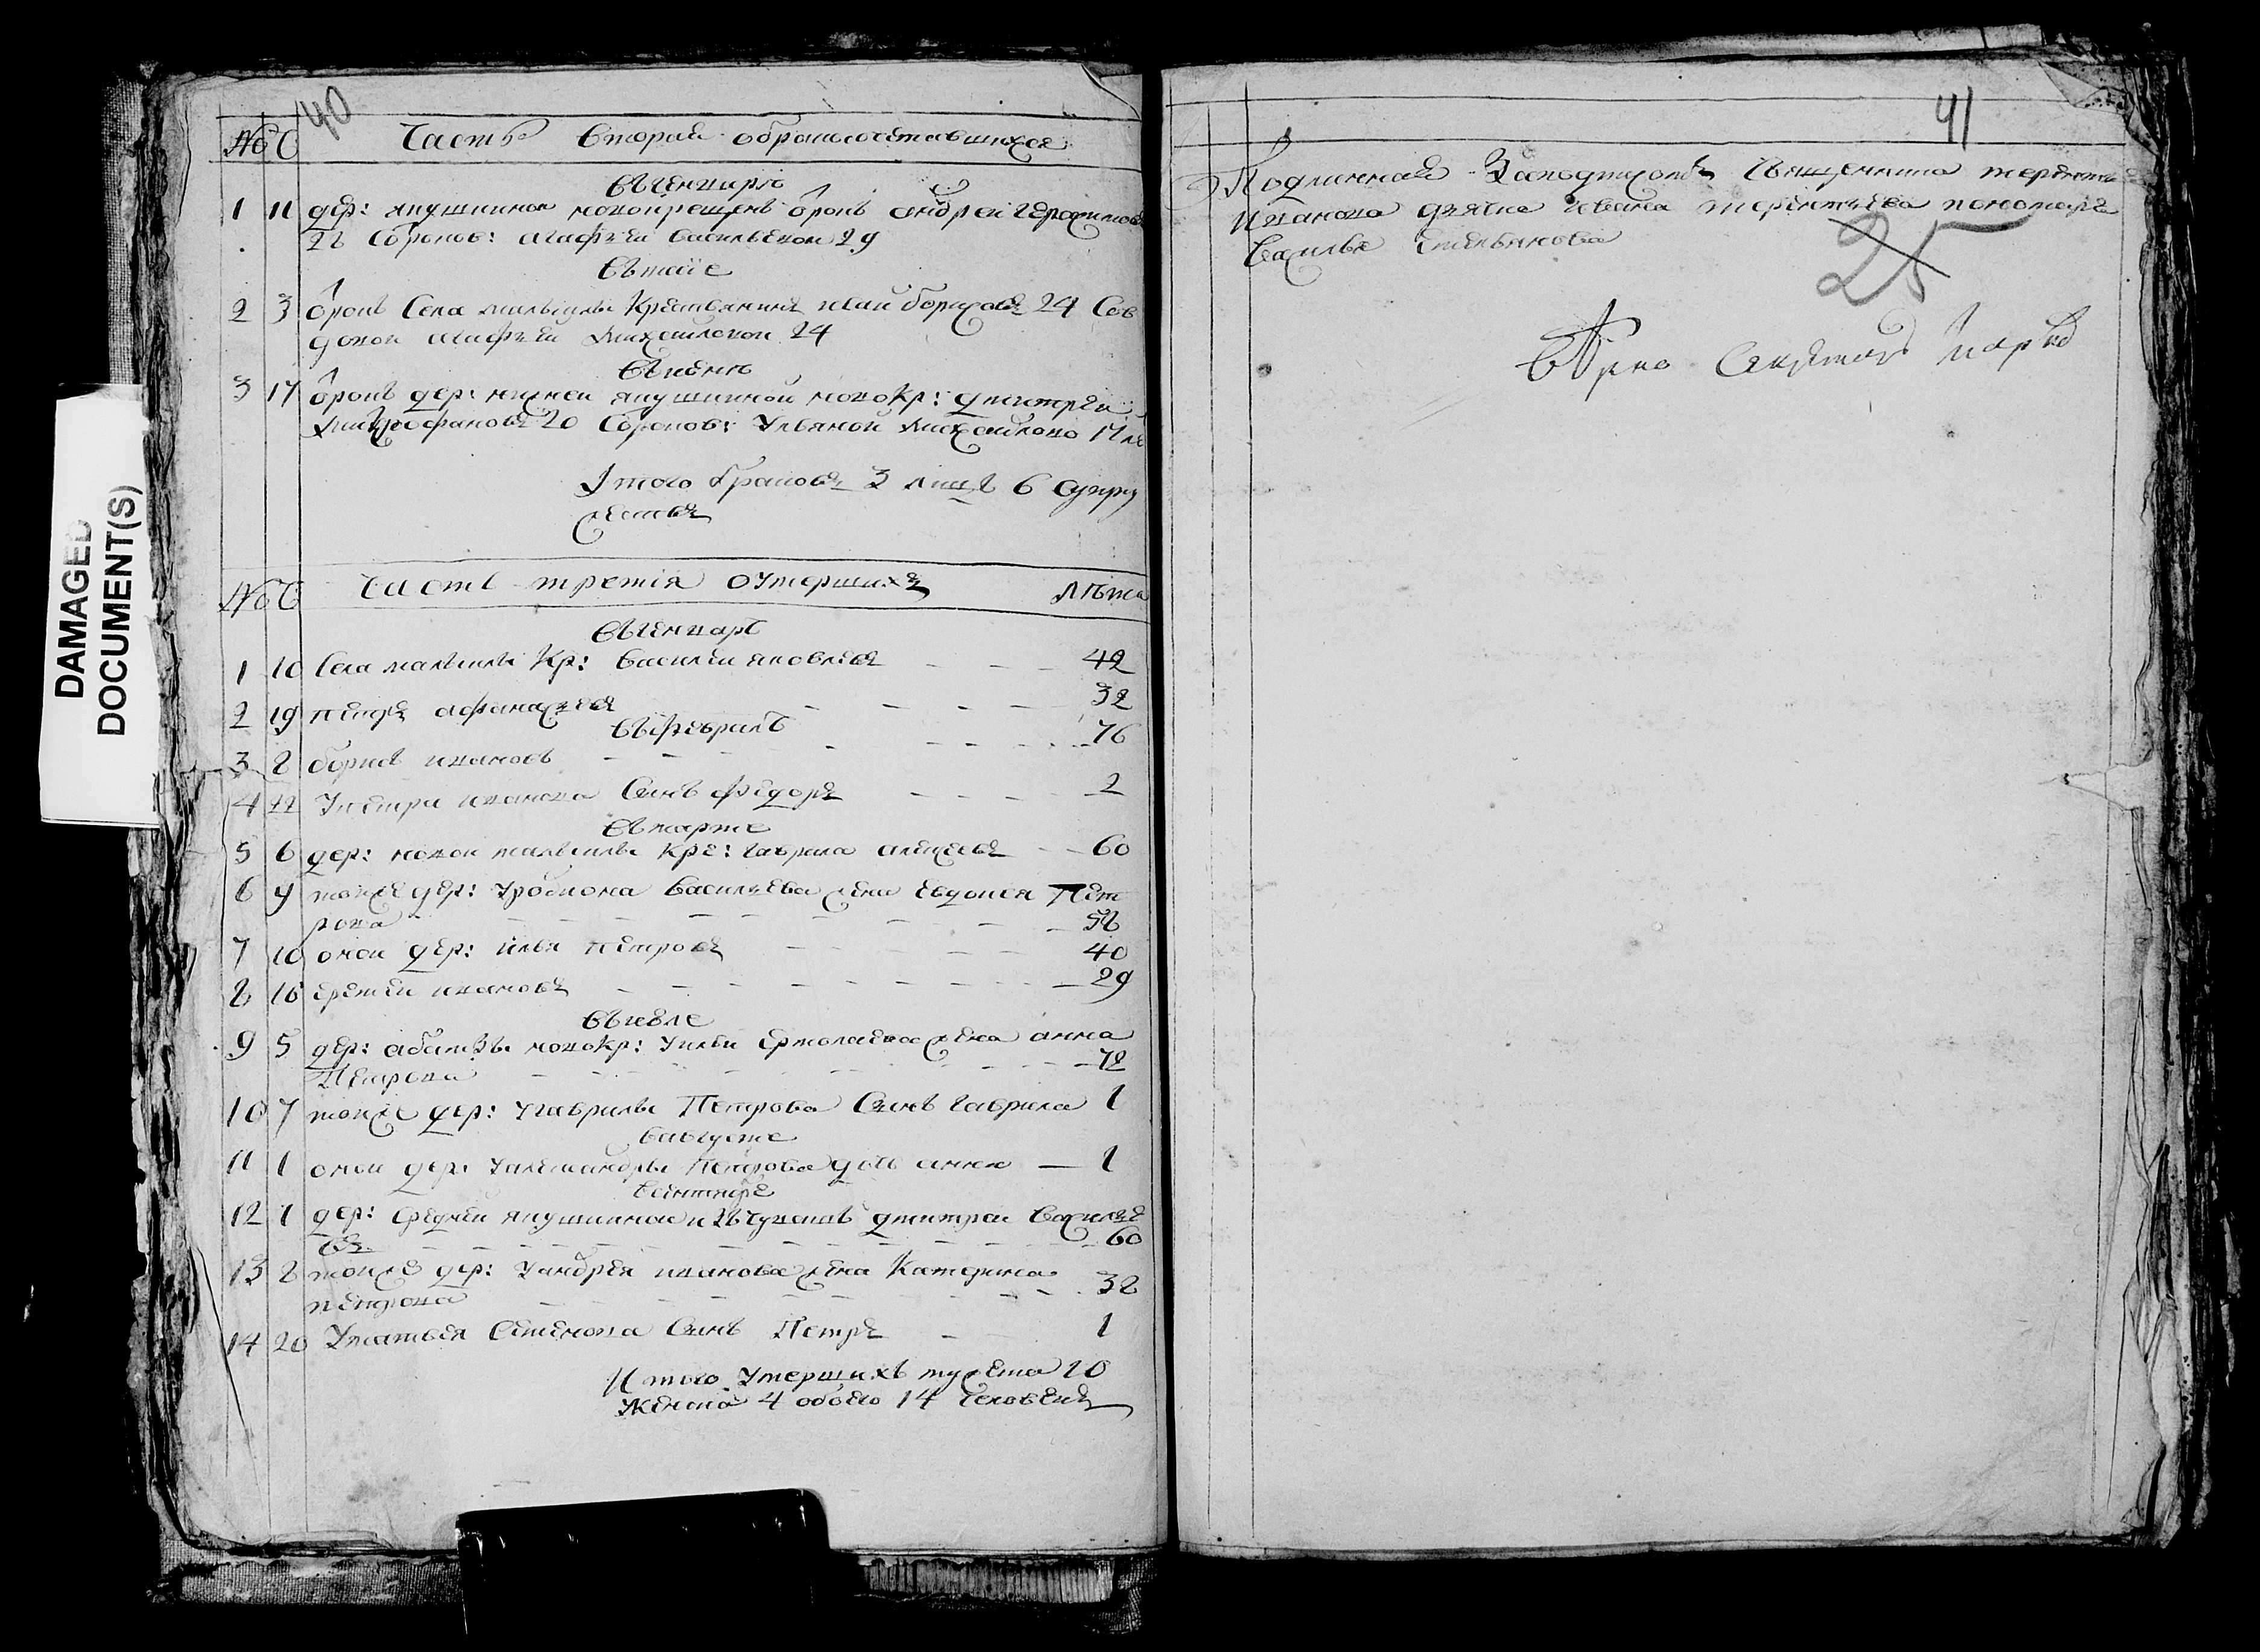 40
№ Ч Часть вторая обракосочетавшихся
въгенваре
1 11 дер: якушкиной новокрещенъ отрокъ андреи герасимов
22 Сотроков: агафьеи васильевои 29
въ маие
2 3 отрокъ Села мальцилы Крестьянинъ иван борисовъ 24 Сов
довои агафьеи михаиловои 24
въиюнь
3 17 отрокъ дер: нижнеи якушкиной новокр: дмитреи
митрофановъ 20 Сотроков: Ульяной михаилово 17 ле
Итого браковъ 3 лицъ 6 Супру
жествъ
№ Ч часть третия оумершихъ лѣта
въгенваре
1 10 Села мальцилы Кр: василеи яковлевъ 42
2 19 петръ афанасьевъ 32
въфеврале
3 8 борисъ ивановъ 76
4 22 Упетра иванова Сынъ федоръ 2
въмарте
5 6 дер: новои мальцилы кре: гаврила алексеевъ 60
6 9 тойже дер: Уродиона васильева жена евдокея Пет
рова 58
7 10 оной дер: илья петровъ 40
8 16 еремеи ивановъ 29
въиюле
9 5 дер: новокр: Уильи ермолаева жена анна
Петрова 72
10 7 тойже дер: Угаврилы Петрова Сынъ гаврила 1
вавгусте
11 1 оной дер: Уалександры Петрова дочь анна 1
всентябре
12 1 дер: средней якушкиной дмитреи василье
въ 60
13 8 тойже дер: Уандрея иванова жена Катерина
петрова 38
14 20 Уматвея Семенова Сынъ Петръ 1
Итого умершихъ мужеска 10
женска 4 обоего 14 человекъ
41
Подлинная Заподписомъ Священника терентья
Иванова дьячка ивана терентьева пономаря
Василья емельянова
25
Верно Секретарь
DAMAGED
DOCUMENT(S)